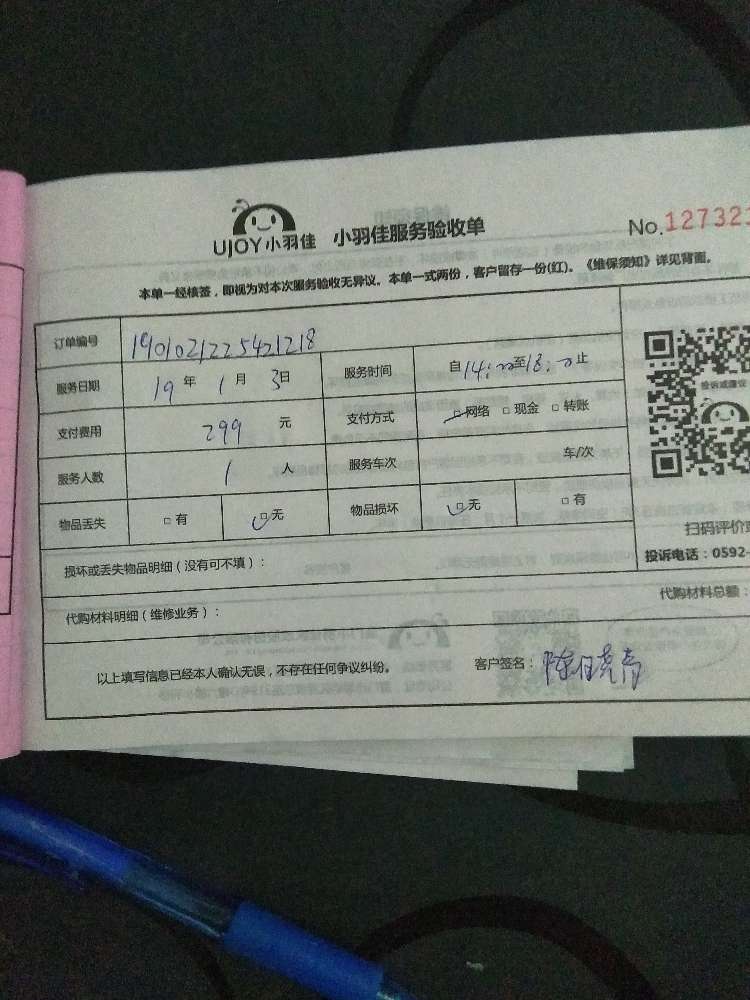 UJOY小羽佳 小羽佳服务验收单 No.127321
本单一经核签，即视为对本次服务验收无异议。本单一式两份，客户留存一份(红)。《维保须知》详见背面。
订单编号 1901021225421218
服务日期 19年1月3日 服务时间 自14:00至18:00止
支付费用 299元 支付方式 □网络 □现金 □转账
服务人数 1人 服务车次 车/次
物品丢失 □有 □无 物品损坏 □无 □有
投诉或建议
扫码评价
投诉电话：0592-
损坏或丢失物品明细（没有可不填）：
代购材料明细（维修业务）： 代购材料总额：
以上填写信息已经本人确认无误，不存在任何争议纠纷。 客户签名：陈